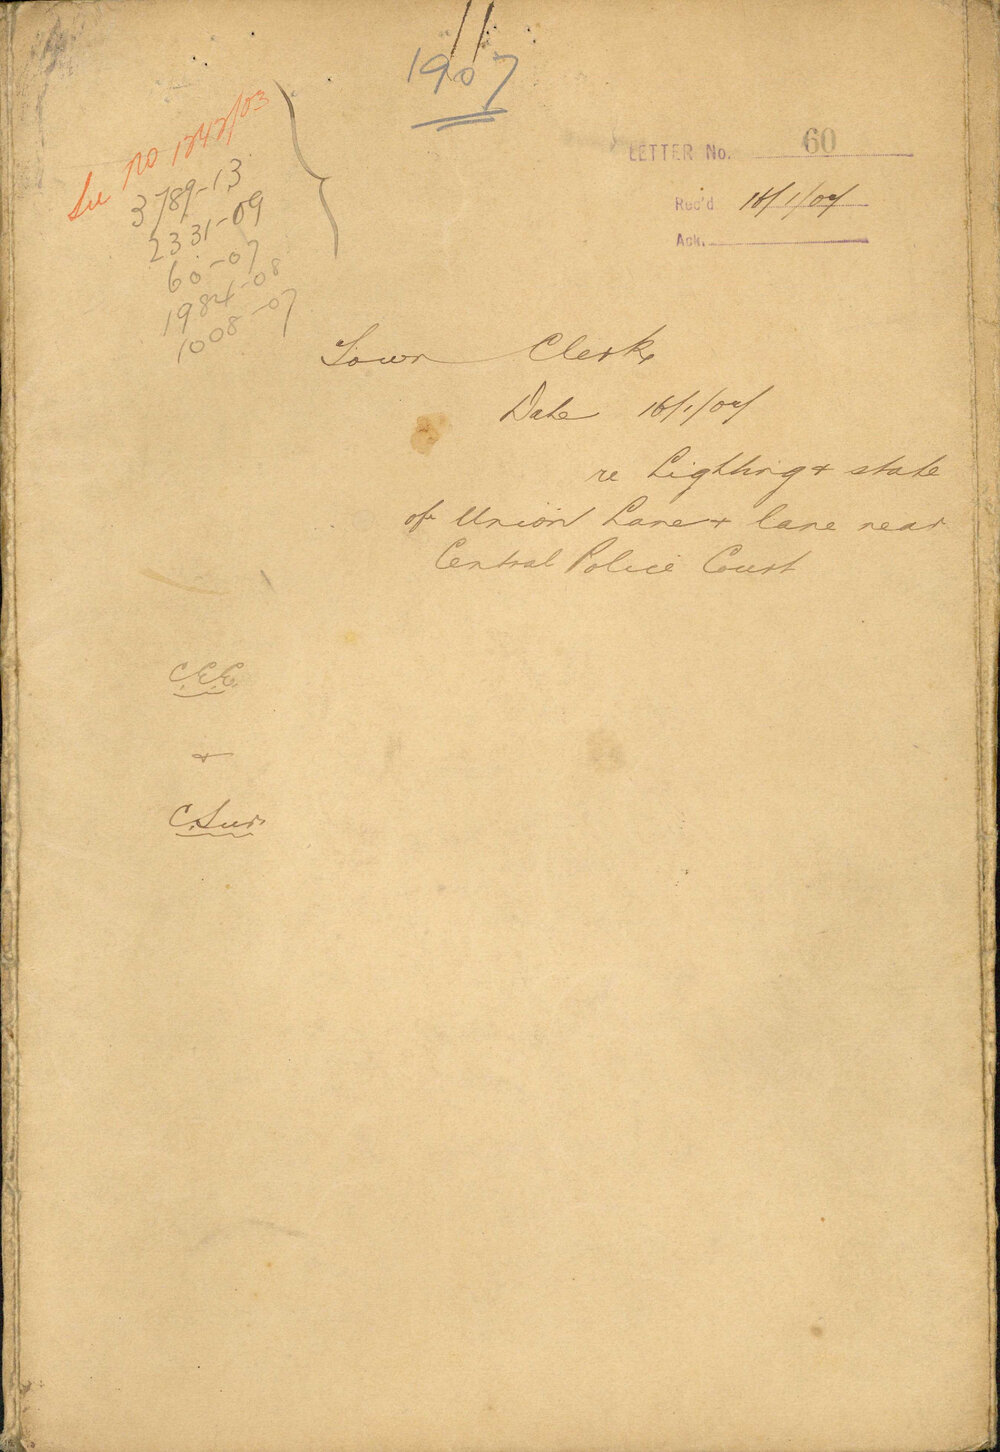 1907
See no 1242/03
3789-13
2331-09
60-07
1984-08
1008-07
LETTER No. 60
Rec'd 16/1/07
Ack.
Town Clerk
Date 16/1/07
re Lighting & state
of Union Lane & lane near
Central Police Court
C.E.E.
&
C. Sur.